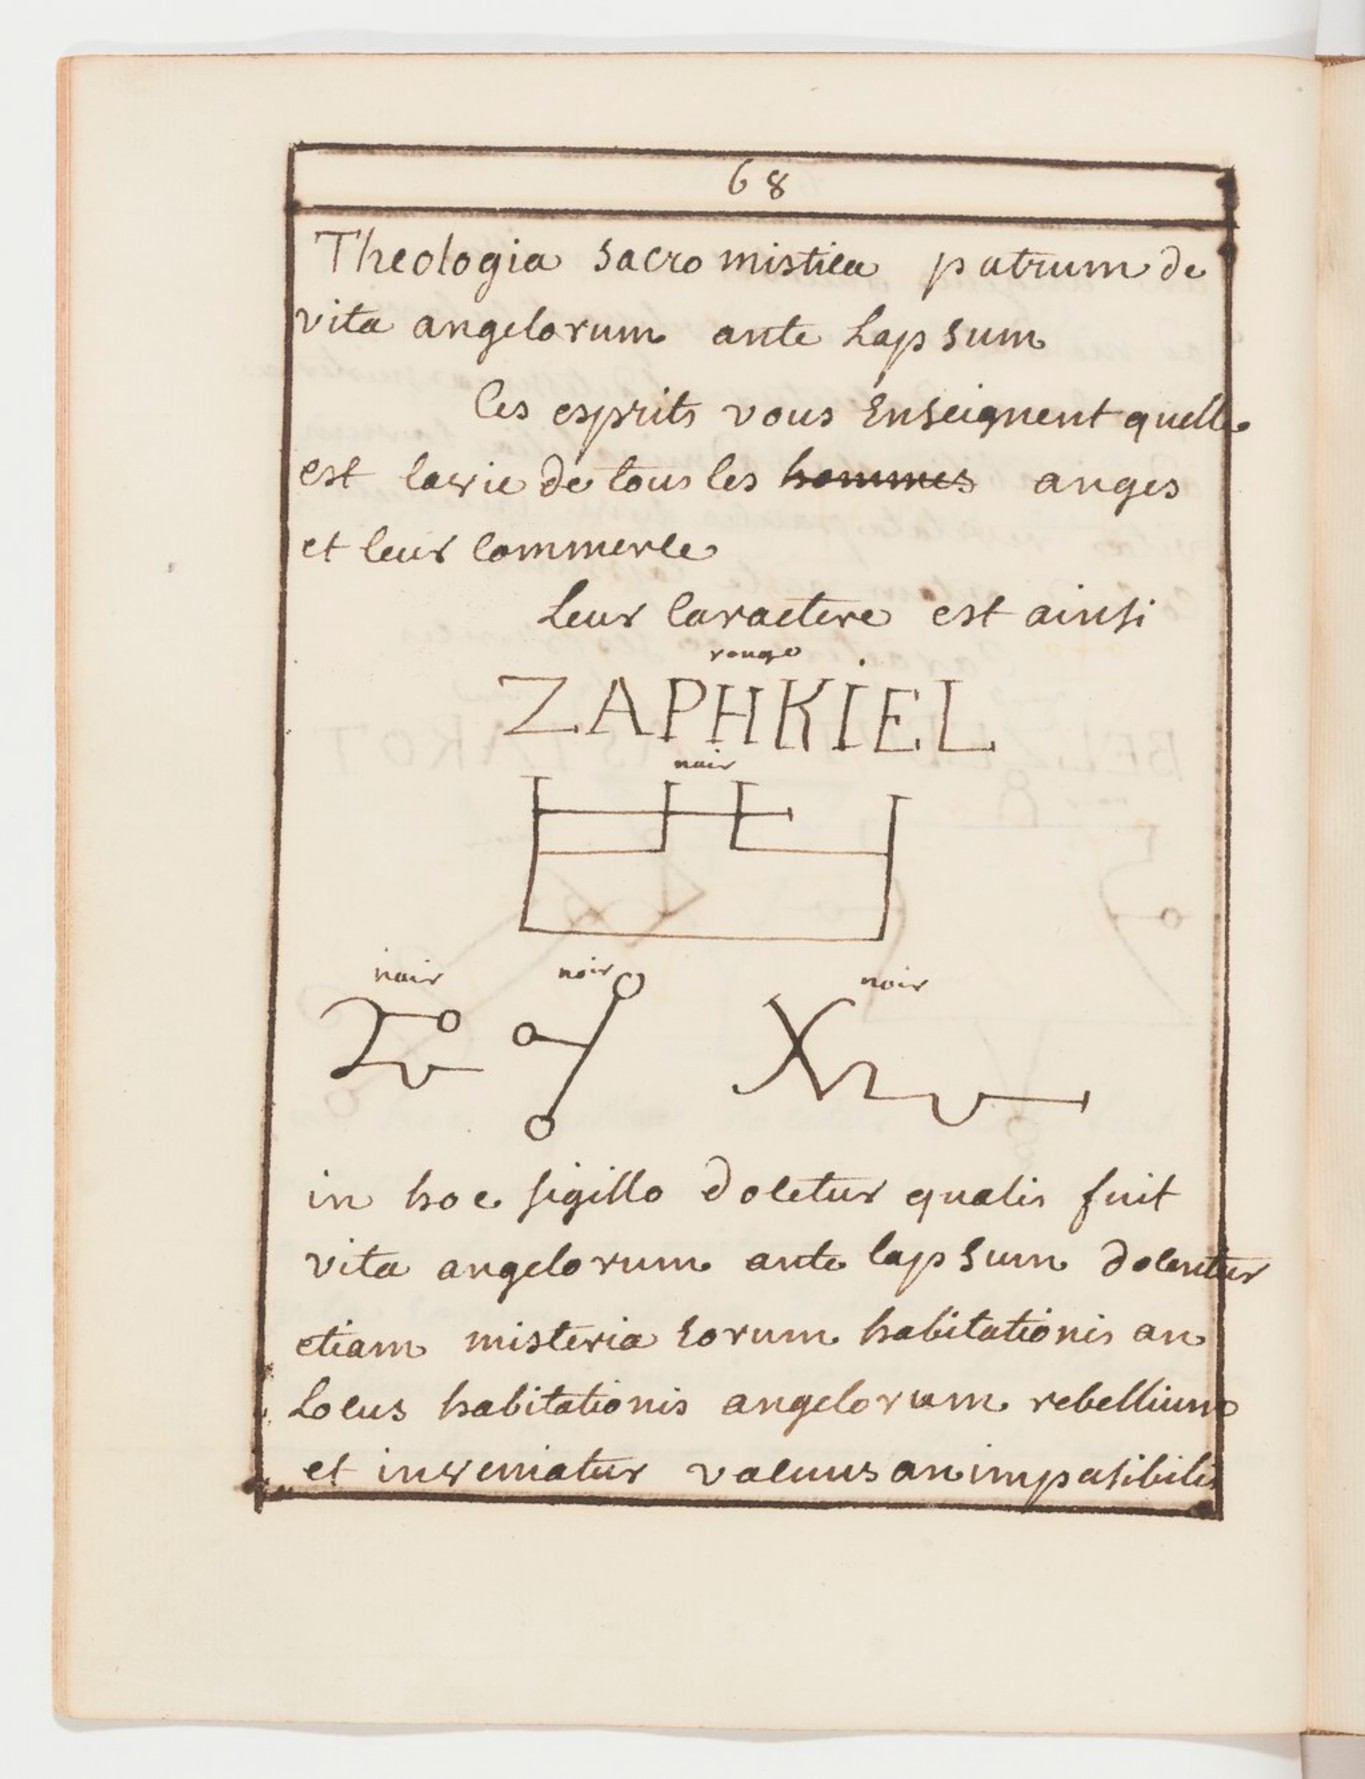 68
Theologia sacro mistica patrum de
vita angelorum ante Lapsum
Ces esprits vous Enseignent quelle
est la vie de tous les hommes anges
et leur commerce
Leur Caractere est ainsi
rouge
ZAPHKIEL
noir
noir noir noir
in hoc sigillo docetur qualis fuit
vita angelorum ante lapsum docentur
etiam misteria Eorum habitationis an
Locus habitationis angelorum rebellium
et inveniatur vacuus an impasibilis